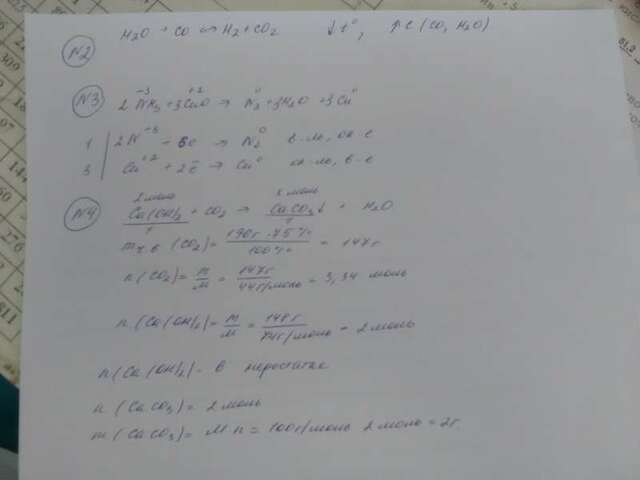 H₂O + CO ⇔ H₂ + CO₂ ↓t°, ↑C (CO, H₂O)
№2
№3 2NH₃ + 3CuO → N₂ + 3H₂O + 3Cu
-3 +2 0 0
1 | 2N⁻³ - 6e → N₂⁰ в-ль, ок-е
3 | Cu⁺² + 2ē → Cu⁰ ок-ль, в-е
2 моль 2 моль
№4 Ca(OH)₂ + CO₂ → CaCO₃↓ + H₂O
1 1
(CO₂) = 190г · 75% / 100% = 147г
n(CO₂) = m/M = 147г / 44г/моль = 3,34 моль
n(Ca(OH)₂) = m/M = 148г / 74г/моль = 2 моль
n(Ca(OH)₂) - в недостатке
n(CaCO₃) = 2 моль
m(CaCO₃) = M n = 100г/моль 2 моль = 2г.